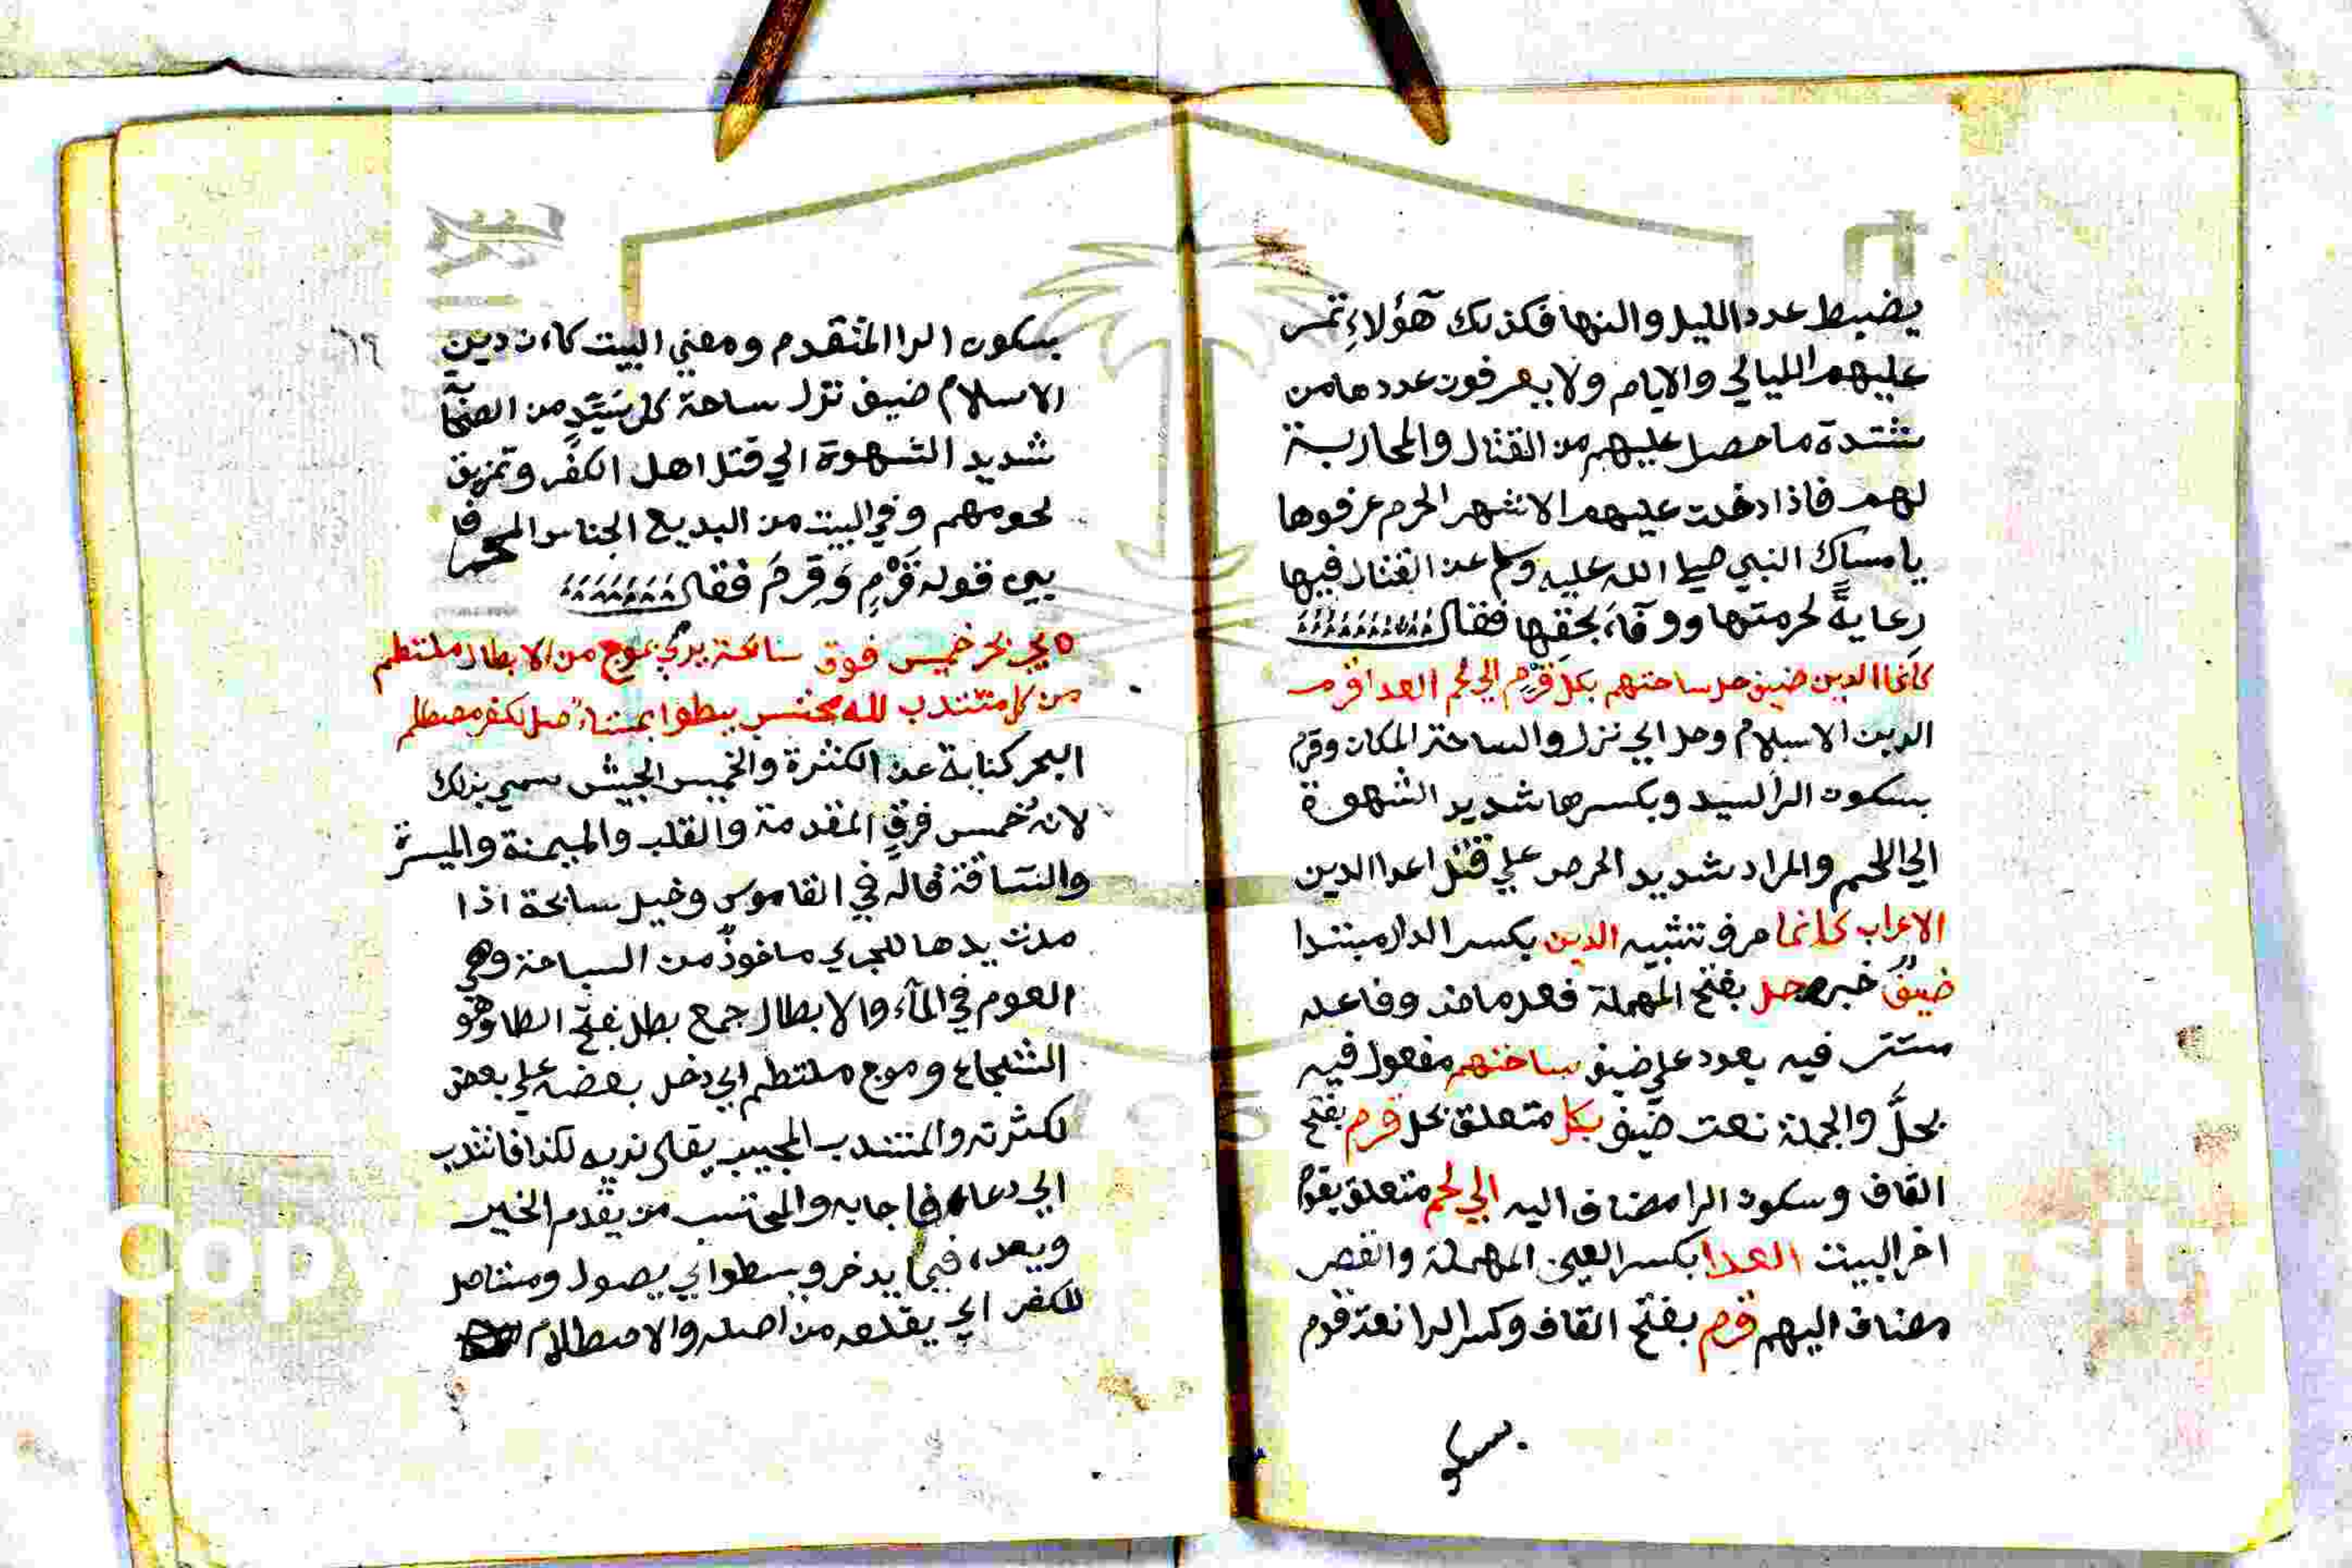 يضبط عدد الليل والنها فكذلك هؤلاء تمر
عليهم الليالي والايام ولا يعرفون عددها من
شدة ما حصل عليهم من القتال والمحاربة
لهم فاذا دخلت عليهم الاشهر الحرم عرفوها
بامساك النبي صلى الله عليه وسلم عن القتال فيها
رعاية لحرمتها ووفاء بحقها فقال
كانما الدين ضيف حل ساحتهم بكل قرم الي لحم العدا قرم
الدين الاسلام وحل اي نزل والساحة المكان وقرم
بسكون الرا السيد وبكسرها شديد الشهوة
الي اللحم والمراد شديد الحرص علي قتل اعدا الدين
الاعراب كانما حرف تشبيه الدين بكسر الدال مبتدا
ضيف خبره حل بفتح المهملة فعل ماض وفاعله
مستتر فيه يعود علي ضيف ساحتهم مفعول فيه
بحل والجملة نعت ضيف بكل متعلق بحل قرم بفتح
القاف وسكون الرا مضاف اليه الي لحم متعلق بقرم
اخر البيت العدا بكسر العين المهملة والقصر
مضاف اليهم قرم بفتح القاف وكسر الرا نعت قرم
بسكو
٦٩
بسكون الرا المتقدم ومعني البيت كان دين
الاسلام ضيف نزل ساحة كل سيد من
شديد الشهوة الي قتل اهل الكفر وتمزيق
لحومهم وفي البيت من البديع الجناس المحرف
بين قوله قرم وقرم فقال
يجر بحر خميس فوق سابحة يرمي بموج من الابطال ملتطم
من كل منتدب لله محتسب يسطوا بمستاصل للكفر مصطلم
البحر كناية عن الكثرة والخميس الجيش سمي بذلك
لانه خمس فرق المقدمة والقلب والميمنة والميسرة
والساقة قاله في القاموس وخيل سابحة اذا
مدت يدها للجري ماخوذ من السباحة وهي
العوم في الماء والابطال جمع بطل بفتح الطا وهو
الشجاع وموج ملتطم اي دخل بعضه علي بعض
لكثرته والمنتدب المجيب يقال ندبه لكذا فانتدب
اي دعاه فاجابه والمحتسب من يقدم الخير
ويعده فيما يدخر ويسطوا اي يصول ومستاصل
للكفر اي يقلعه من اصله والاصطلام